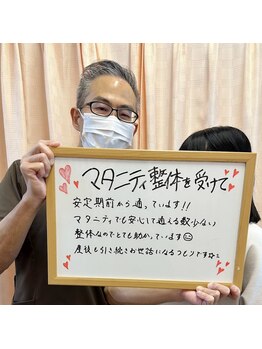 マタニティ整体を受けて
安定期前から通っています!!
マタニティでも安心して通える数少ない
整体なのでとても助かっています😊
産後も引き続きお世話になるつもりです☆ミ